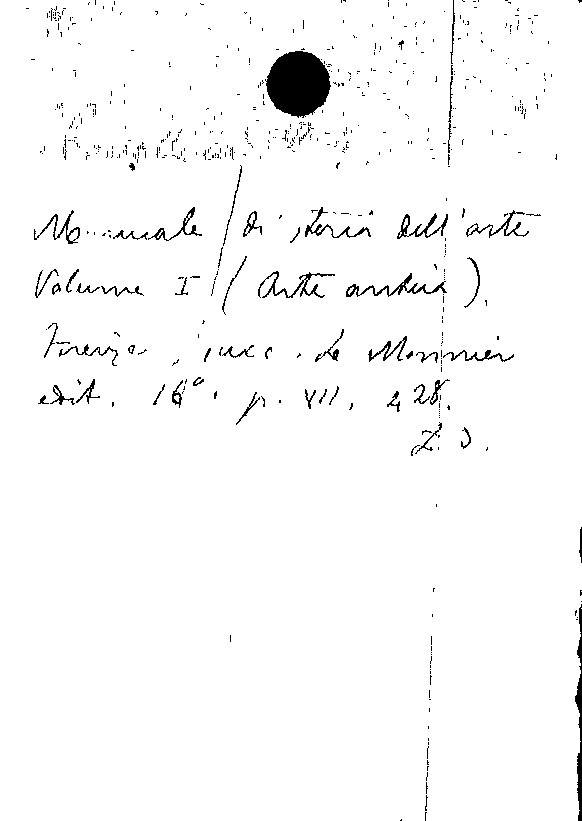 Manuale di storia dell'arte
Volume I (Arte antica).
Firenze, succ. Le Monnier
edit. 16°. p. VII, 428.